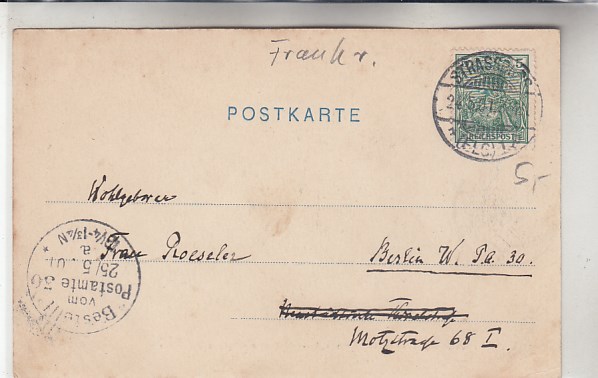 Frankr.
POSTKARTE
5
STRASSBURG
REICHSPOST
(ELS)
5,-
Wohlgeboren
Frau Roeseler
Berlin W. Pa. 30.
Motzstrasse 68 I.
Bestellt
vom
Postamte 30
25.5.01.
1/4-1 3/4 N